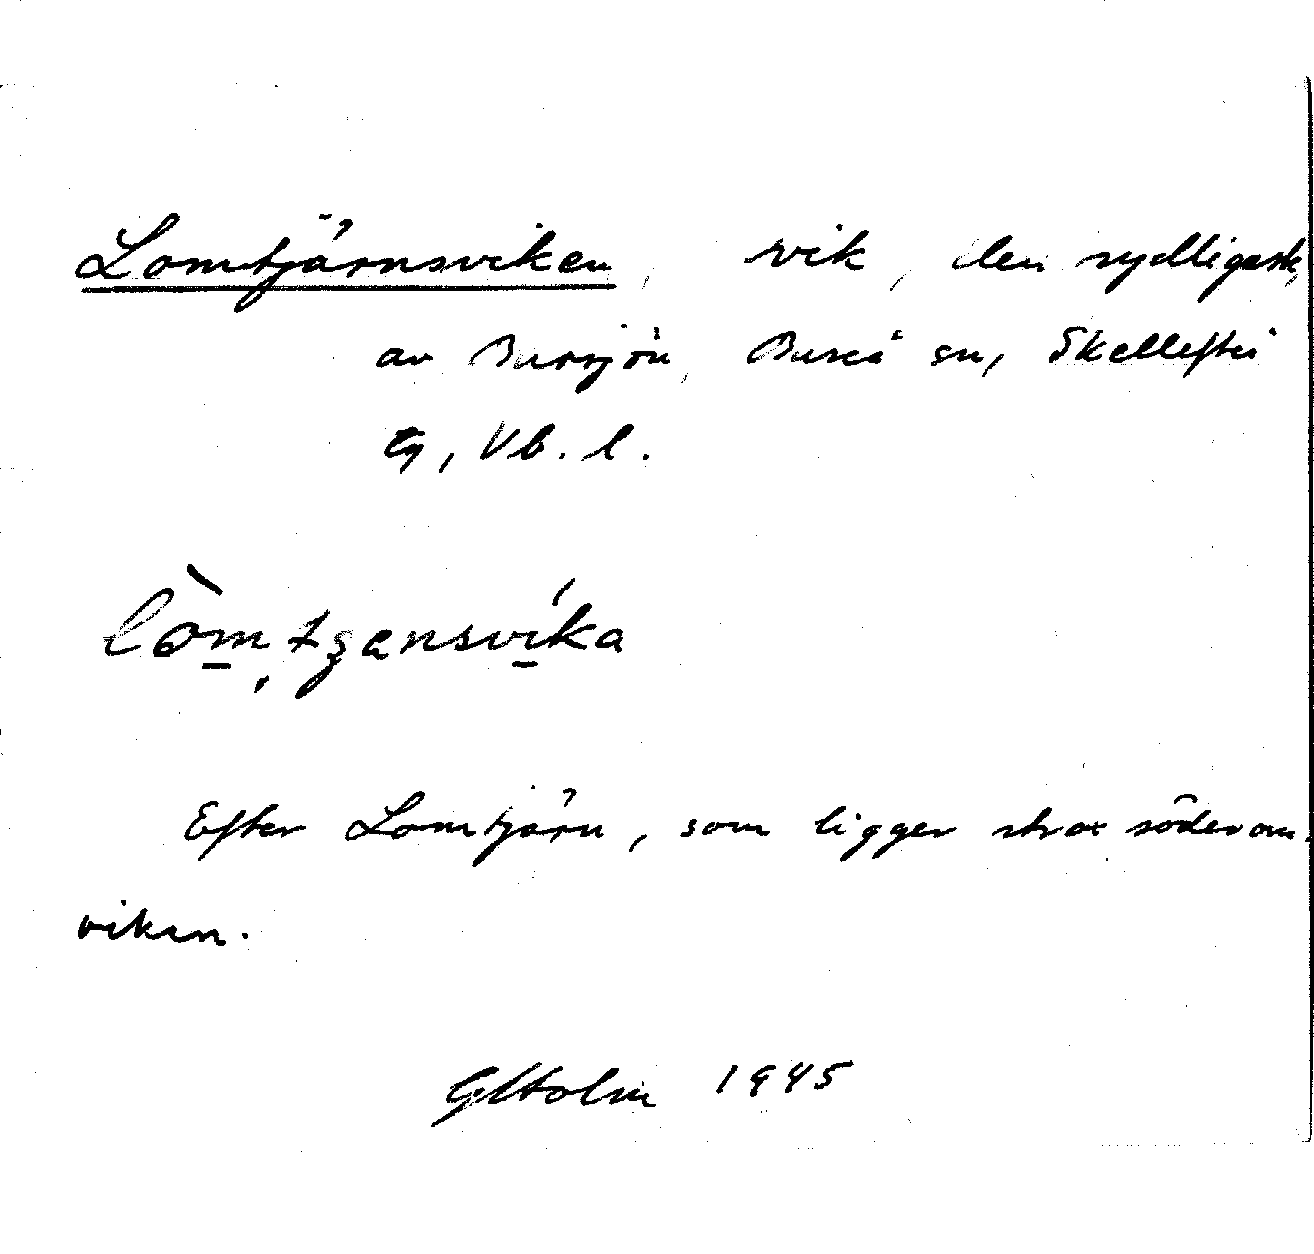 Lomtjärnsviken, vik, den sydligaste,
av Bursjön, Bureå sn, Skellefteå
tg, Vb. l.
lòm,tʒensvíka
Efter Lomtjärn, som ligger strax söder om
viken.
GHolm 1945